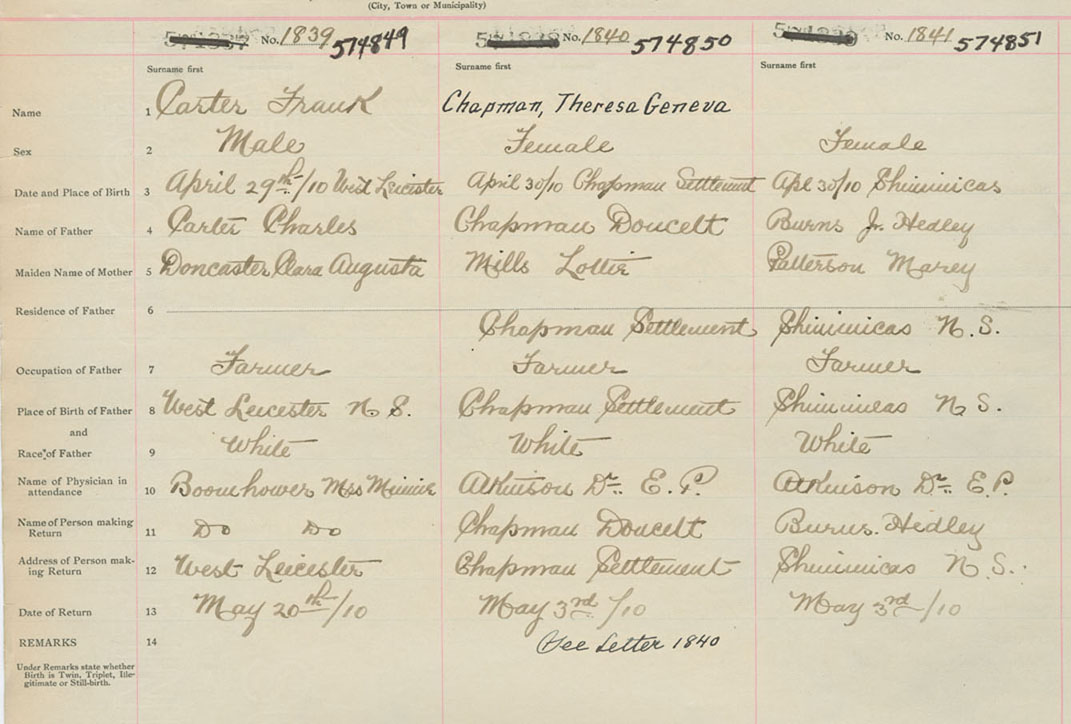 (City, Town or Municipality)
No. 1839 574849 No. 1840 574850 No. 1841 574851
Surname first Surname first Surname first
Name 1 Carter Frank Chapman, Theresa Geneva
Sex 2 Male Female Female
Date and Place of Birth 3 April 29th/10 West Leicister April 30/10 Chapman Settlement Apl 30/10 Shinimicas
Name of Father 4 Carter Charles Chapman Doucett Burns Jr. Hedley
Maiden Name of Mother 5 Doncaster Clara Augusta Mills Lottie Patterson Marey
Residence of Father 6 Chapman Settlement Shinimicas N. S.
Occupation of Father 7 Farmer Farmer Farmer
Place of Birth of Father 8 West Leicester N. S. Chapman Settlement N. S.
and
Race of Father 9 White White White
Name of Physician in
attendance 10 Boomhower Mrs Minnie Atkinson Dr. E. P. Atkinson Dr. E. P.
Name of Person making
Return 11 Do Do Chapman Doucett Burns. Hedley
Address of Person mak-
ing Return 12 West Leicester Chapman Settlement Shinimicas N. S.
Date of Return 13 May 20th/10 May 3rd/10 May 3rd/10
REMARKS 14 See Letter 1840
Under Remarks state whether
Birth is Twin, Triplet, Ille-
gitimate or Still-birth.